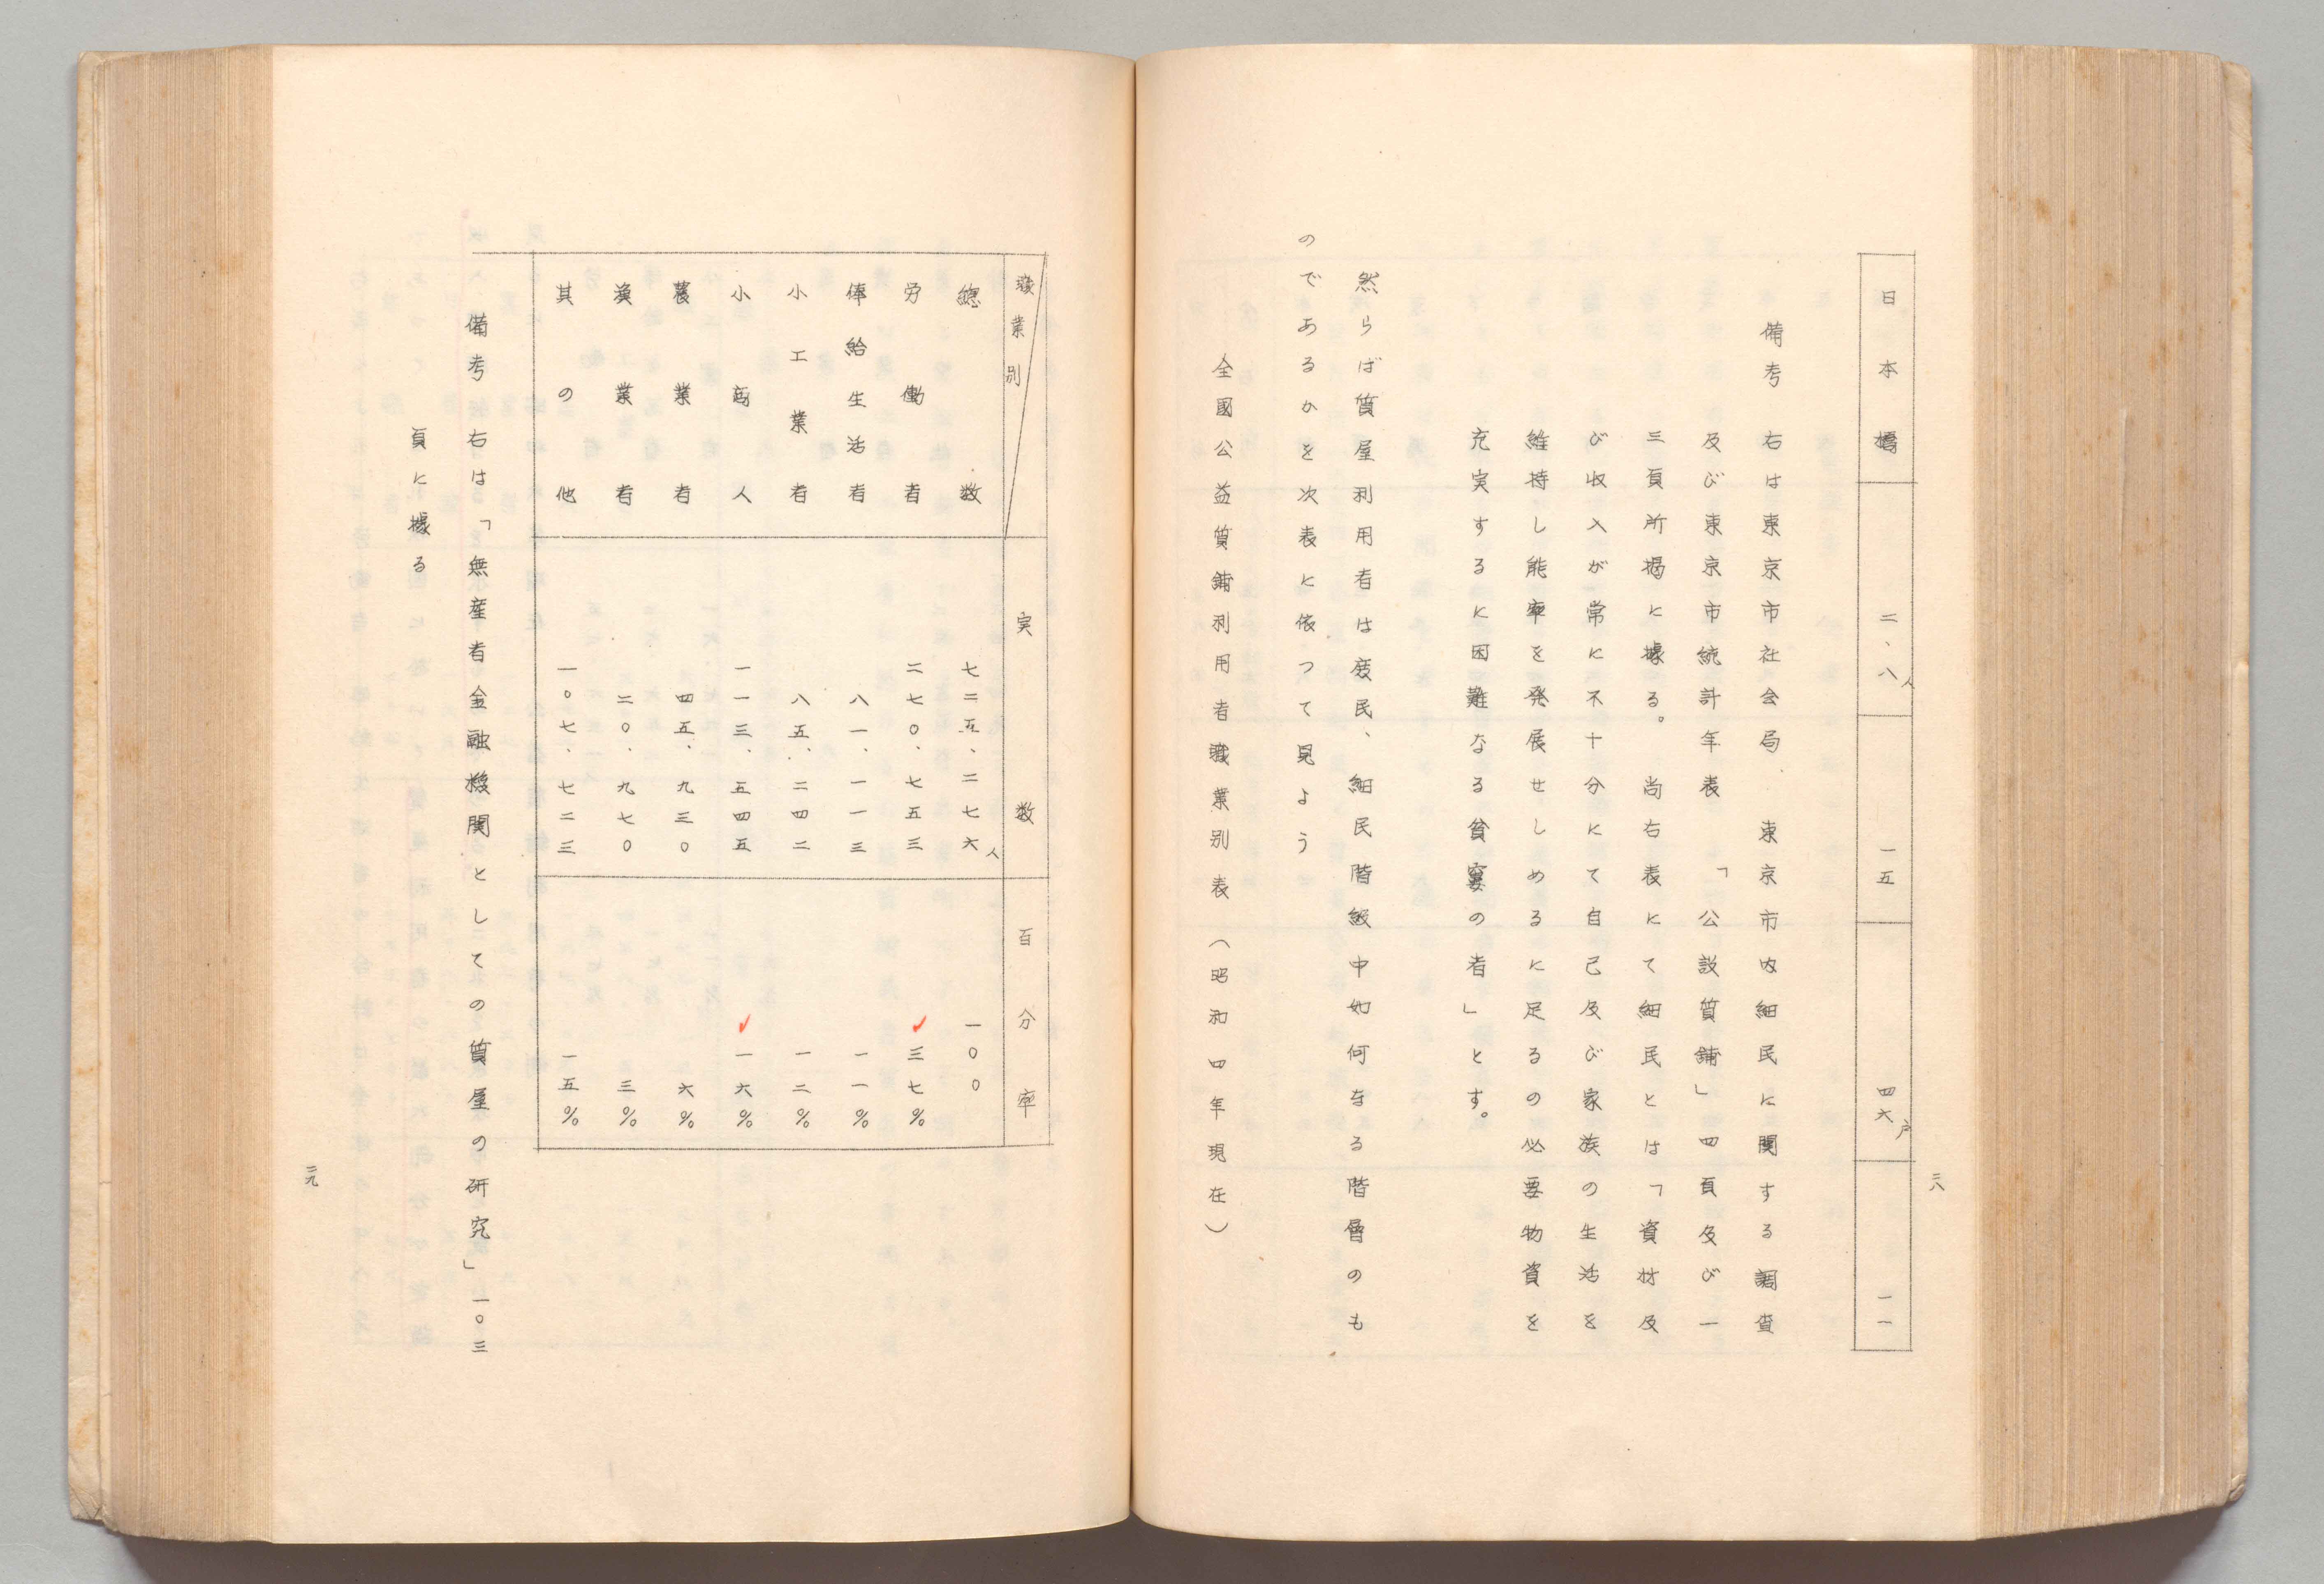 三八
日本橋 二、八人 一五 四六戸 一一
備考 右は東京市社会局 東京市内細民に関する調査
及び東京市統計年表 「公設質舗」四頁及び一
三頁所掲に據る。尚右表にて細民とは「資材及
び収入が常に不十分にて自己及び家族の生活を
維持し能率を発展せしめるに足るの必要物資を
充実するに困難なる貧窶の者」とす。
然らば質屋利用者は廃民、細民階級中如何なる階層のも
のであるかを次表に依つて見よう
全國公益質舗利用者職業別表(昭和四年現在)
職業別 実数 百分率
總数 七二五、二七六人 一〇〇
労働者 二七〇、七五三 三七%
俸給生活者 八一、一一三 一一%
小工業者 八五、二四二 一二%
小商人 一一三、五四五 一六%
農業者 四五、九三〇 六%
漁業者 二〇、九七〇 三%
其の他 一〇七、七二三 一五%
備考 右は「無産者金融機関としての質屋の研究」一〇三
頁に據る
三九